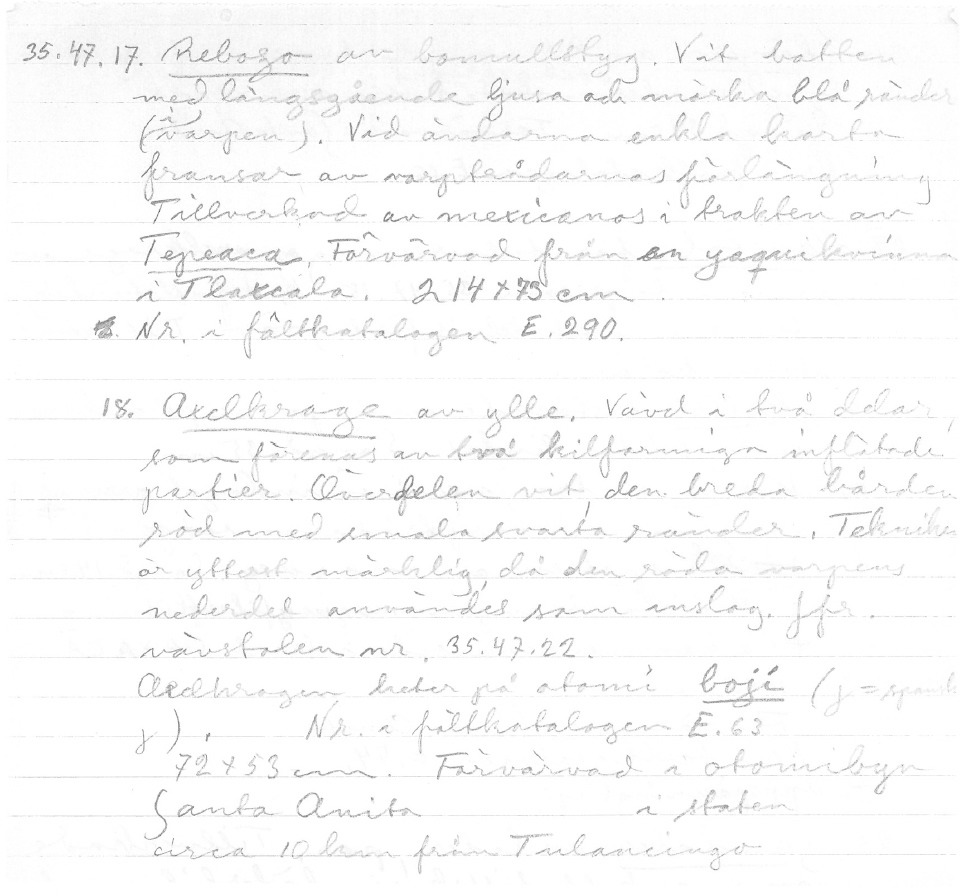 35.47.17. Rebozo av bomullstyg. Vit botten
med långsgående ljusa och mörka blå ränder
(i varpen). Vid ändarna enkla korta
fransar av varptrådarnas förlängning
Tillverkad av mexicanos i trakten av
Tepeaca. Förvärvad från en yaquikvinna
i Tlaxcala. 214 x 73 cm
Nr. i fältkatalogen E. 290.
18. Axelkrage av ylle. Vävd i två delar,
som förenas av två kilformiga inflätade
partier. Överdelen vit, den breda bården
röd med smala svarta ränder. Tekniken
är ytterst märklig, då den röda varpens
nederdel användes som inslag. Jfr.
vävstolen nr. 35.47.22.
Axelkragen heter på otomí bojí (j = spansk
j). Nr. i fältkatalogen E. 63
72 x 53 cm. Förvärvad i otomibyn
Santa Anita i staten
circa 10 km från Tulancingo